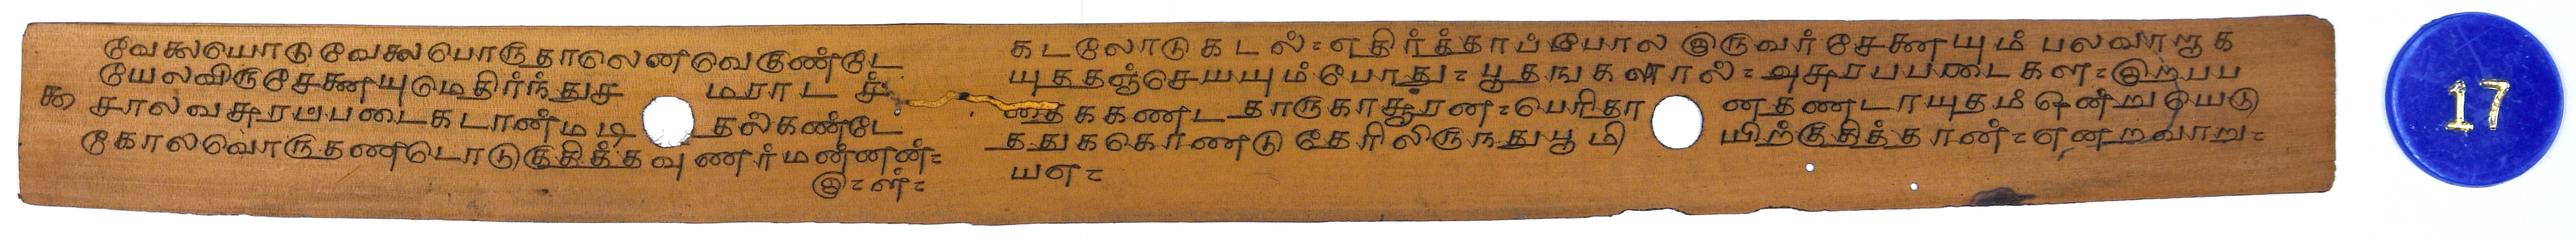 வேலையொடு வேலை பொருதாலெனவெகுண்டே
யேலவிருசேனையுமெதிர்ந்துச மராட
௯ சாலவசுரப்படைகடான்மடி தல்கண்டே
கோலவொருதண்டொடுகுதித்தவுணர்மன்னன்:
கடலோடு கடல்: எதிர்த்தாப்போல இருவர் சேனையும் பலவாறாக
யுத்தஞ்செயயும்போது: பூதஙகளால்: அசுரபபடைகள: இறபப
கக்கணட தாருகாசூரன: பெரிதா னதணடாயுதம் ஒன்று யெடு
ததுககொணடு தேரிலிருநதுபூமி யிற்குதித்தான்: எனறவாறு:
17